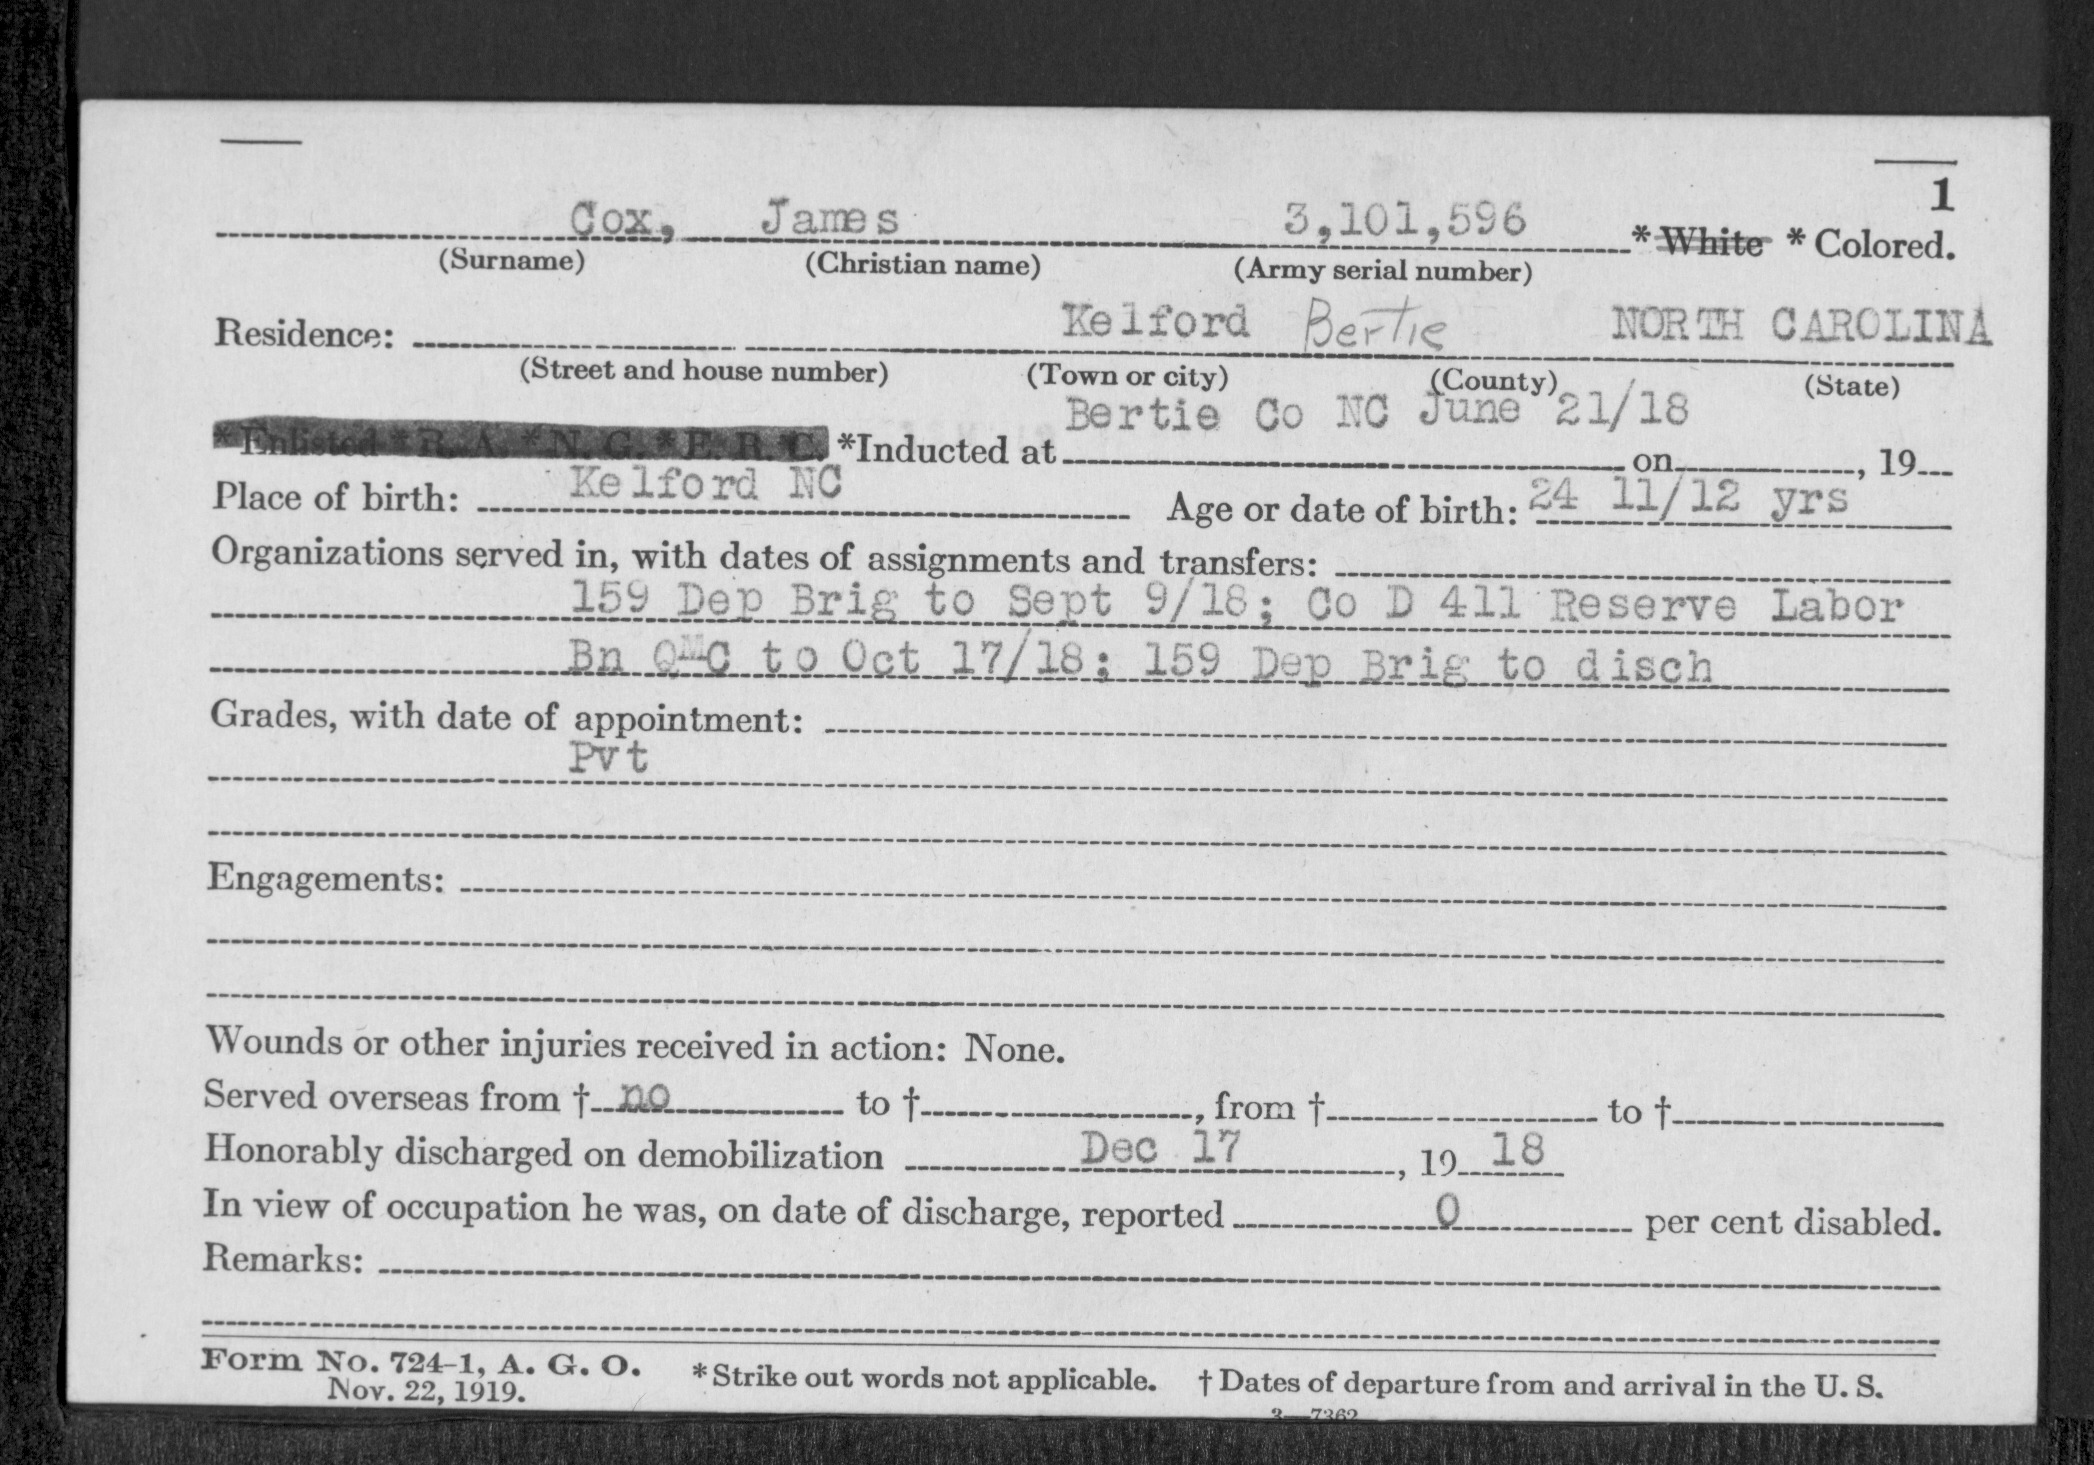 1
Cox, James 3,101,596 * White * Colored.
(Surname) (Christian name) (Army serial number)
Residence: Kelford Bertie NORTH CAROLINA
(Street and house number) (Town or city) (County) (State)
Bertie Co NC June 21/18
*Enlisted *R. A. *N. G. *E. R. C. *Inducted at on , 19
Place of birth: Kelford NC Age or date of birth: 24 11/12 yrs
Organizations served in, with dates of assignments and transfers:
159 Dep Brig to Sept 9/18; Co D 411 Reserve Labor
Bn QMC to Oct 17/18; 159 Dep Brig to disch
Grades, with date of appointment:
Pvt
Engagements:
Wounds or other injuries received in action: None.
Served overseas from † no to † , from † to †
Honorably discharged on demobilization Dec 17 , 19 18
In view of occupation he was, on date of discharge, reported 0 per cent disabled.
Remarks:
Form No. 724-1, A. G. O. *Strike out words not applicable. † Dates of departure from and arrival in the U. S.
Nov. 22, 1919.
3—7362